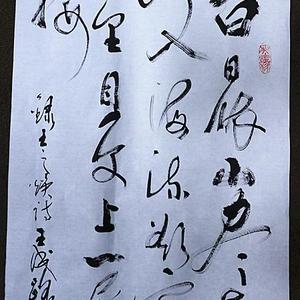 白日依山尽
入海流欲
里目更上一层
楼
録王之涣诗 王